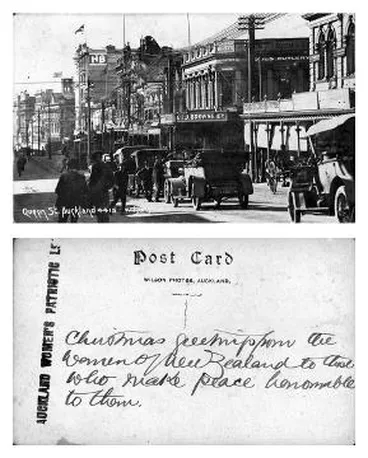 NB
Queen St. Auckland 4415
Post Card
WILSON PHOTOS, AUCKLAND.
AUCKLAND WOMEN'S PATRIOTIC
Christmas greetings from the
women of New Zealand to those
who make peace honorable
to them.